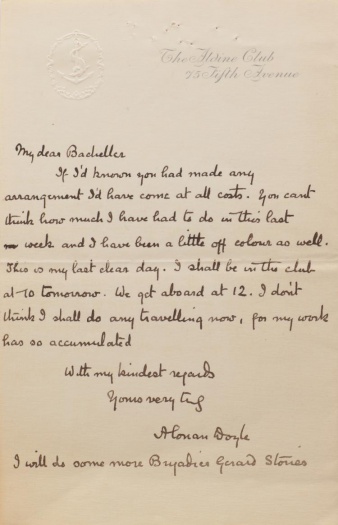 The Aldine Club
75 Fifth Avenue
My dear Bacheller
If I'd known you had made any
arrangement I'd have come at all costs. You cant
think how much I have had to do in this last
week and I have been a little off colour as well.
This is my last clear day. I shall be in the club
at 10 tomorrow. We get aboard at 12. I don't
think I shall do any travelling now, for my work
has so accumulated
With my kindest regards
Yours very truly
A Conan Doyle
I will do some more Brigadier Gerard Stories